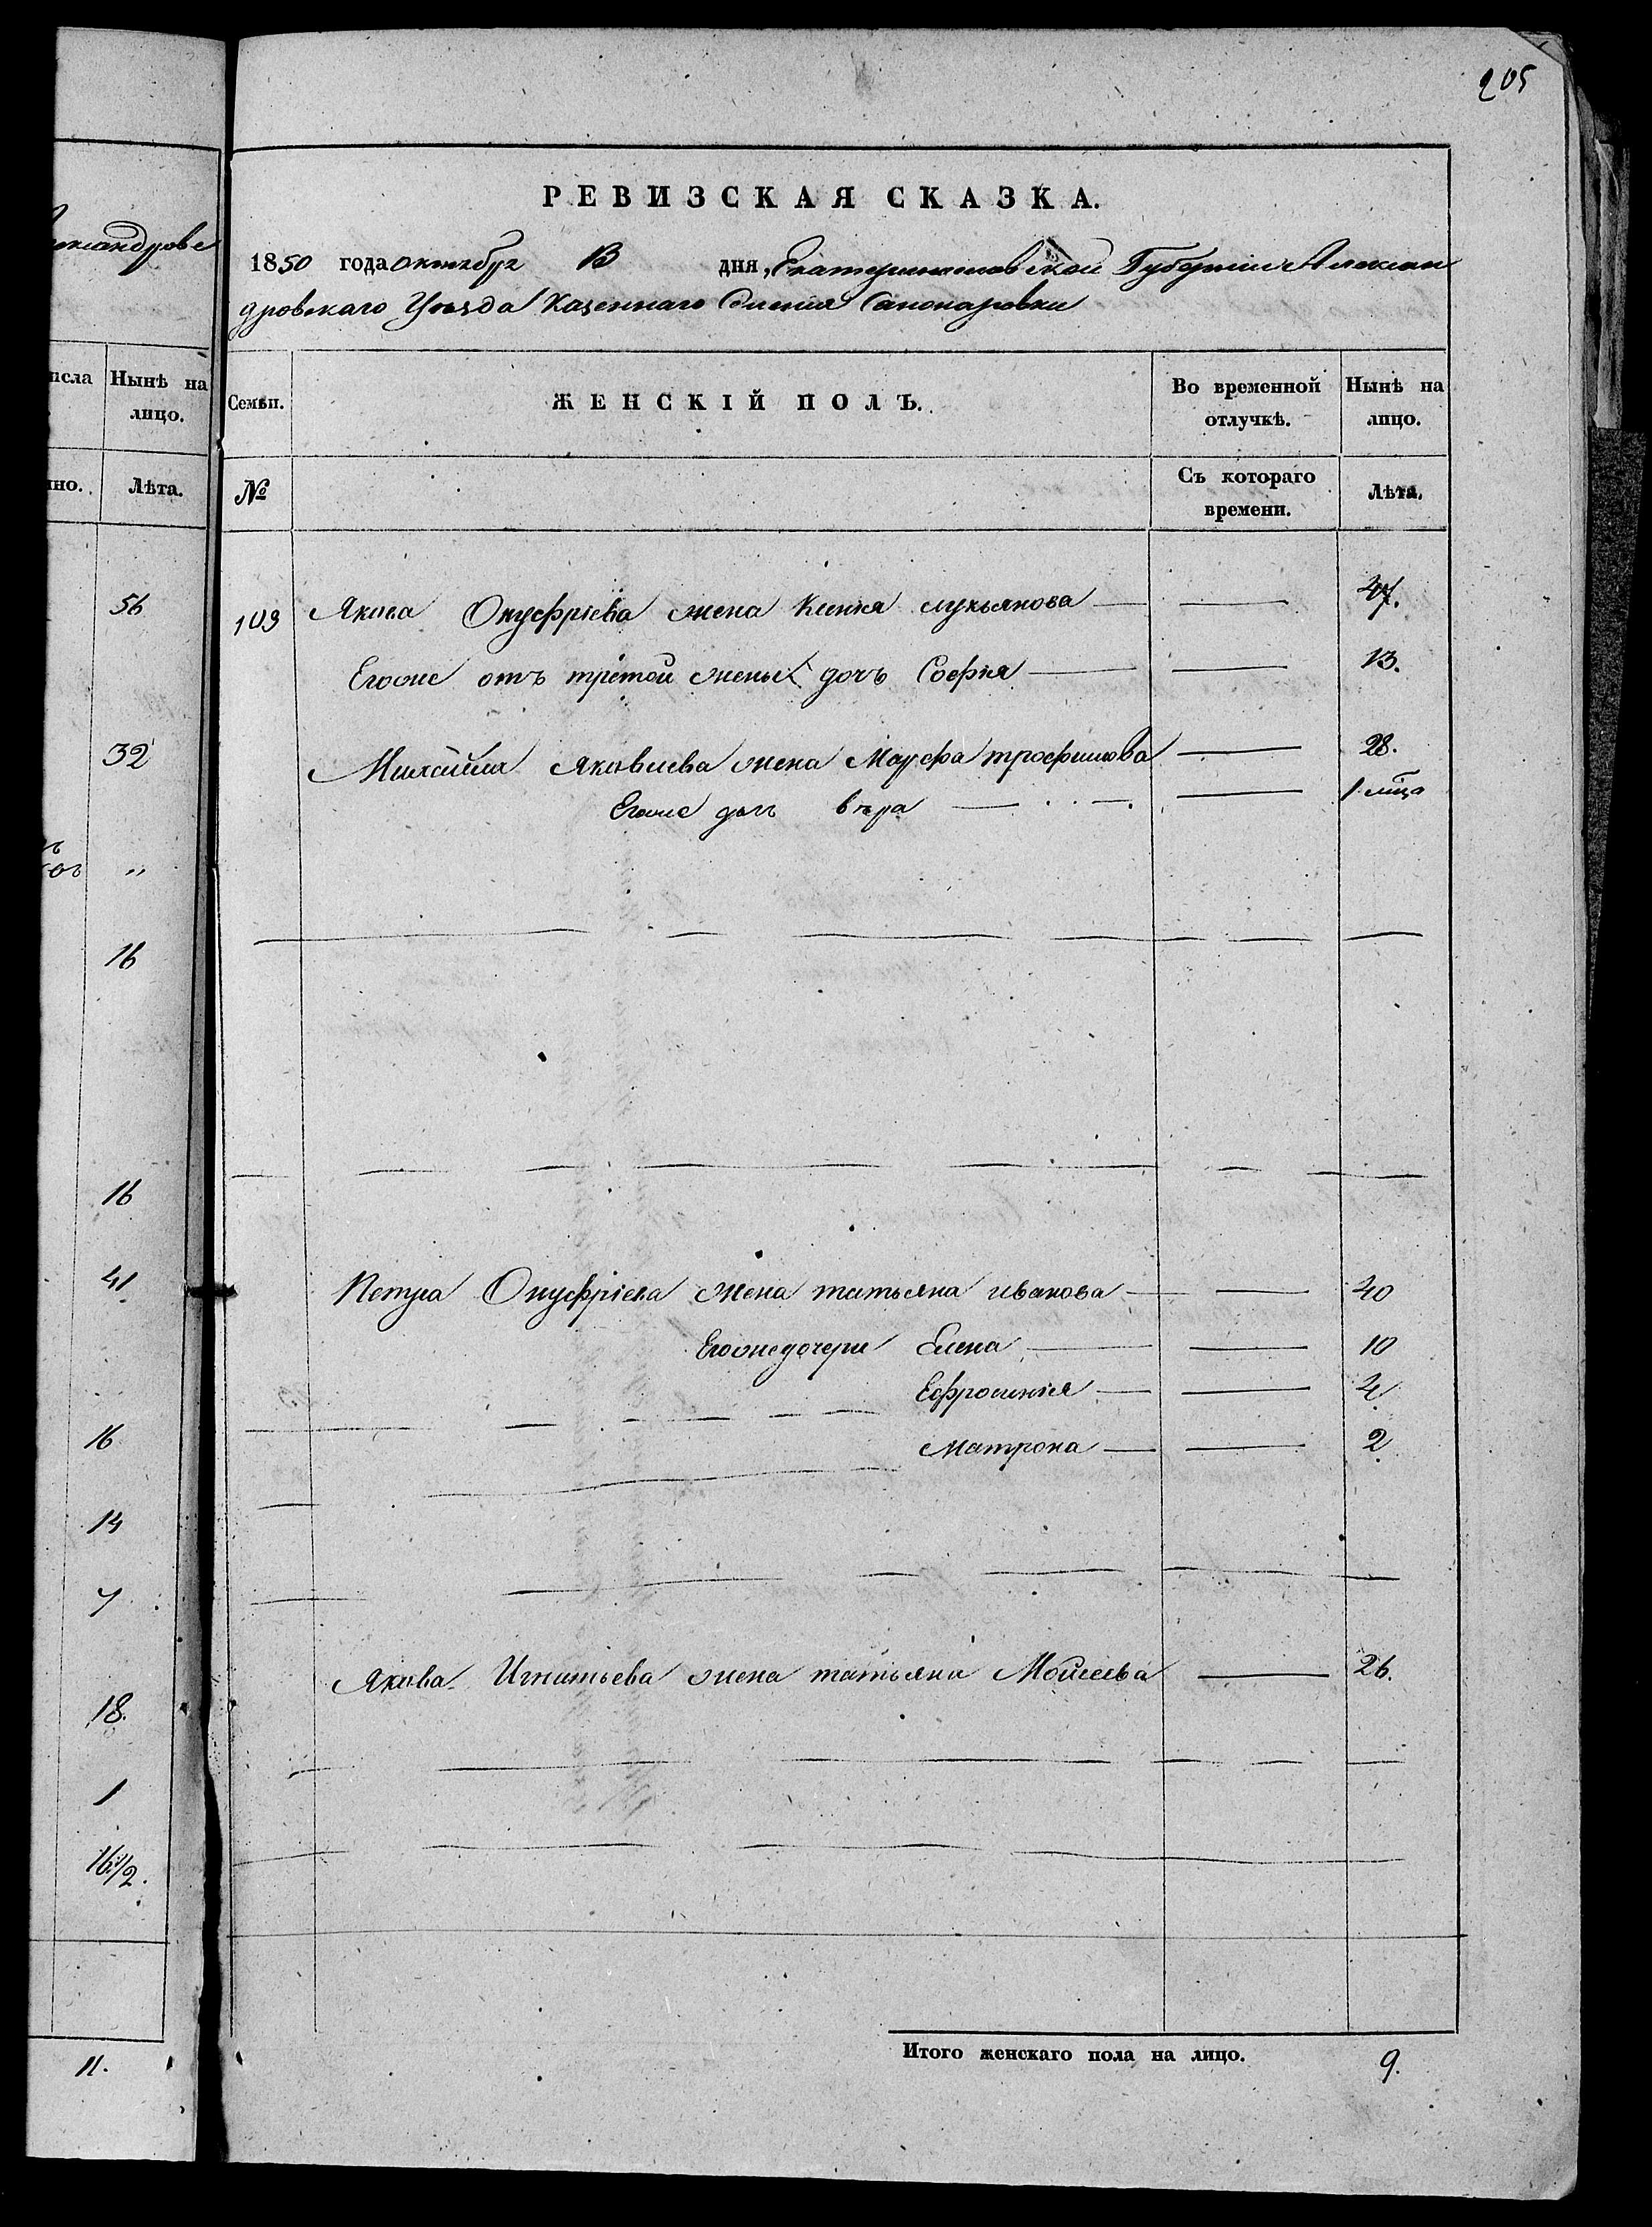 205
РЕВИЗСКАЯ СКАЗКА.
1850 года октября 13 дня, Екатеринославской Губернии Алексан
дровскаго Уѣзда Казеннаго Селения
исла
Нынѣ на
лицо.
но.
Лѣта.
56
32
"
16
16
41
16
14
7
18.
1
16 1/2.
11.
Семьи.
ЖЕНСКІЙ ПОЛЪ.
Во временной
отлучкѣ.
Нынѣ на
лицо.
№
Съ котораго
времени.
Лѣта.
109 Якова Онуфріева жена Ксения лукьянова 47.
Егоже отъ третой жены дочь Софія 13.
Михайла Яковлева жена Марфа трофимова 28.
Егоже дочь вѣра 1 мца
Петра Онуфріева жена татьяна иванова 40
Егоже дочери Елена 10
Ефросинія 4
Матрона 2
Якова Игнатьева жена татьяна Моисеева 26.
Итого женскаго пола на лицо. 9.